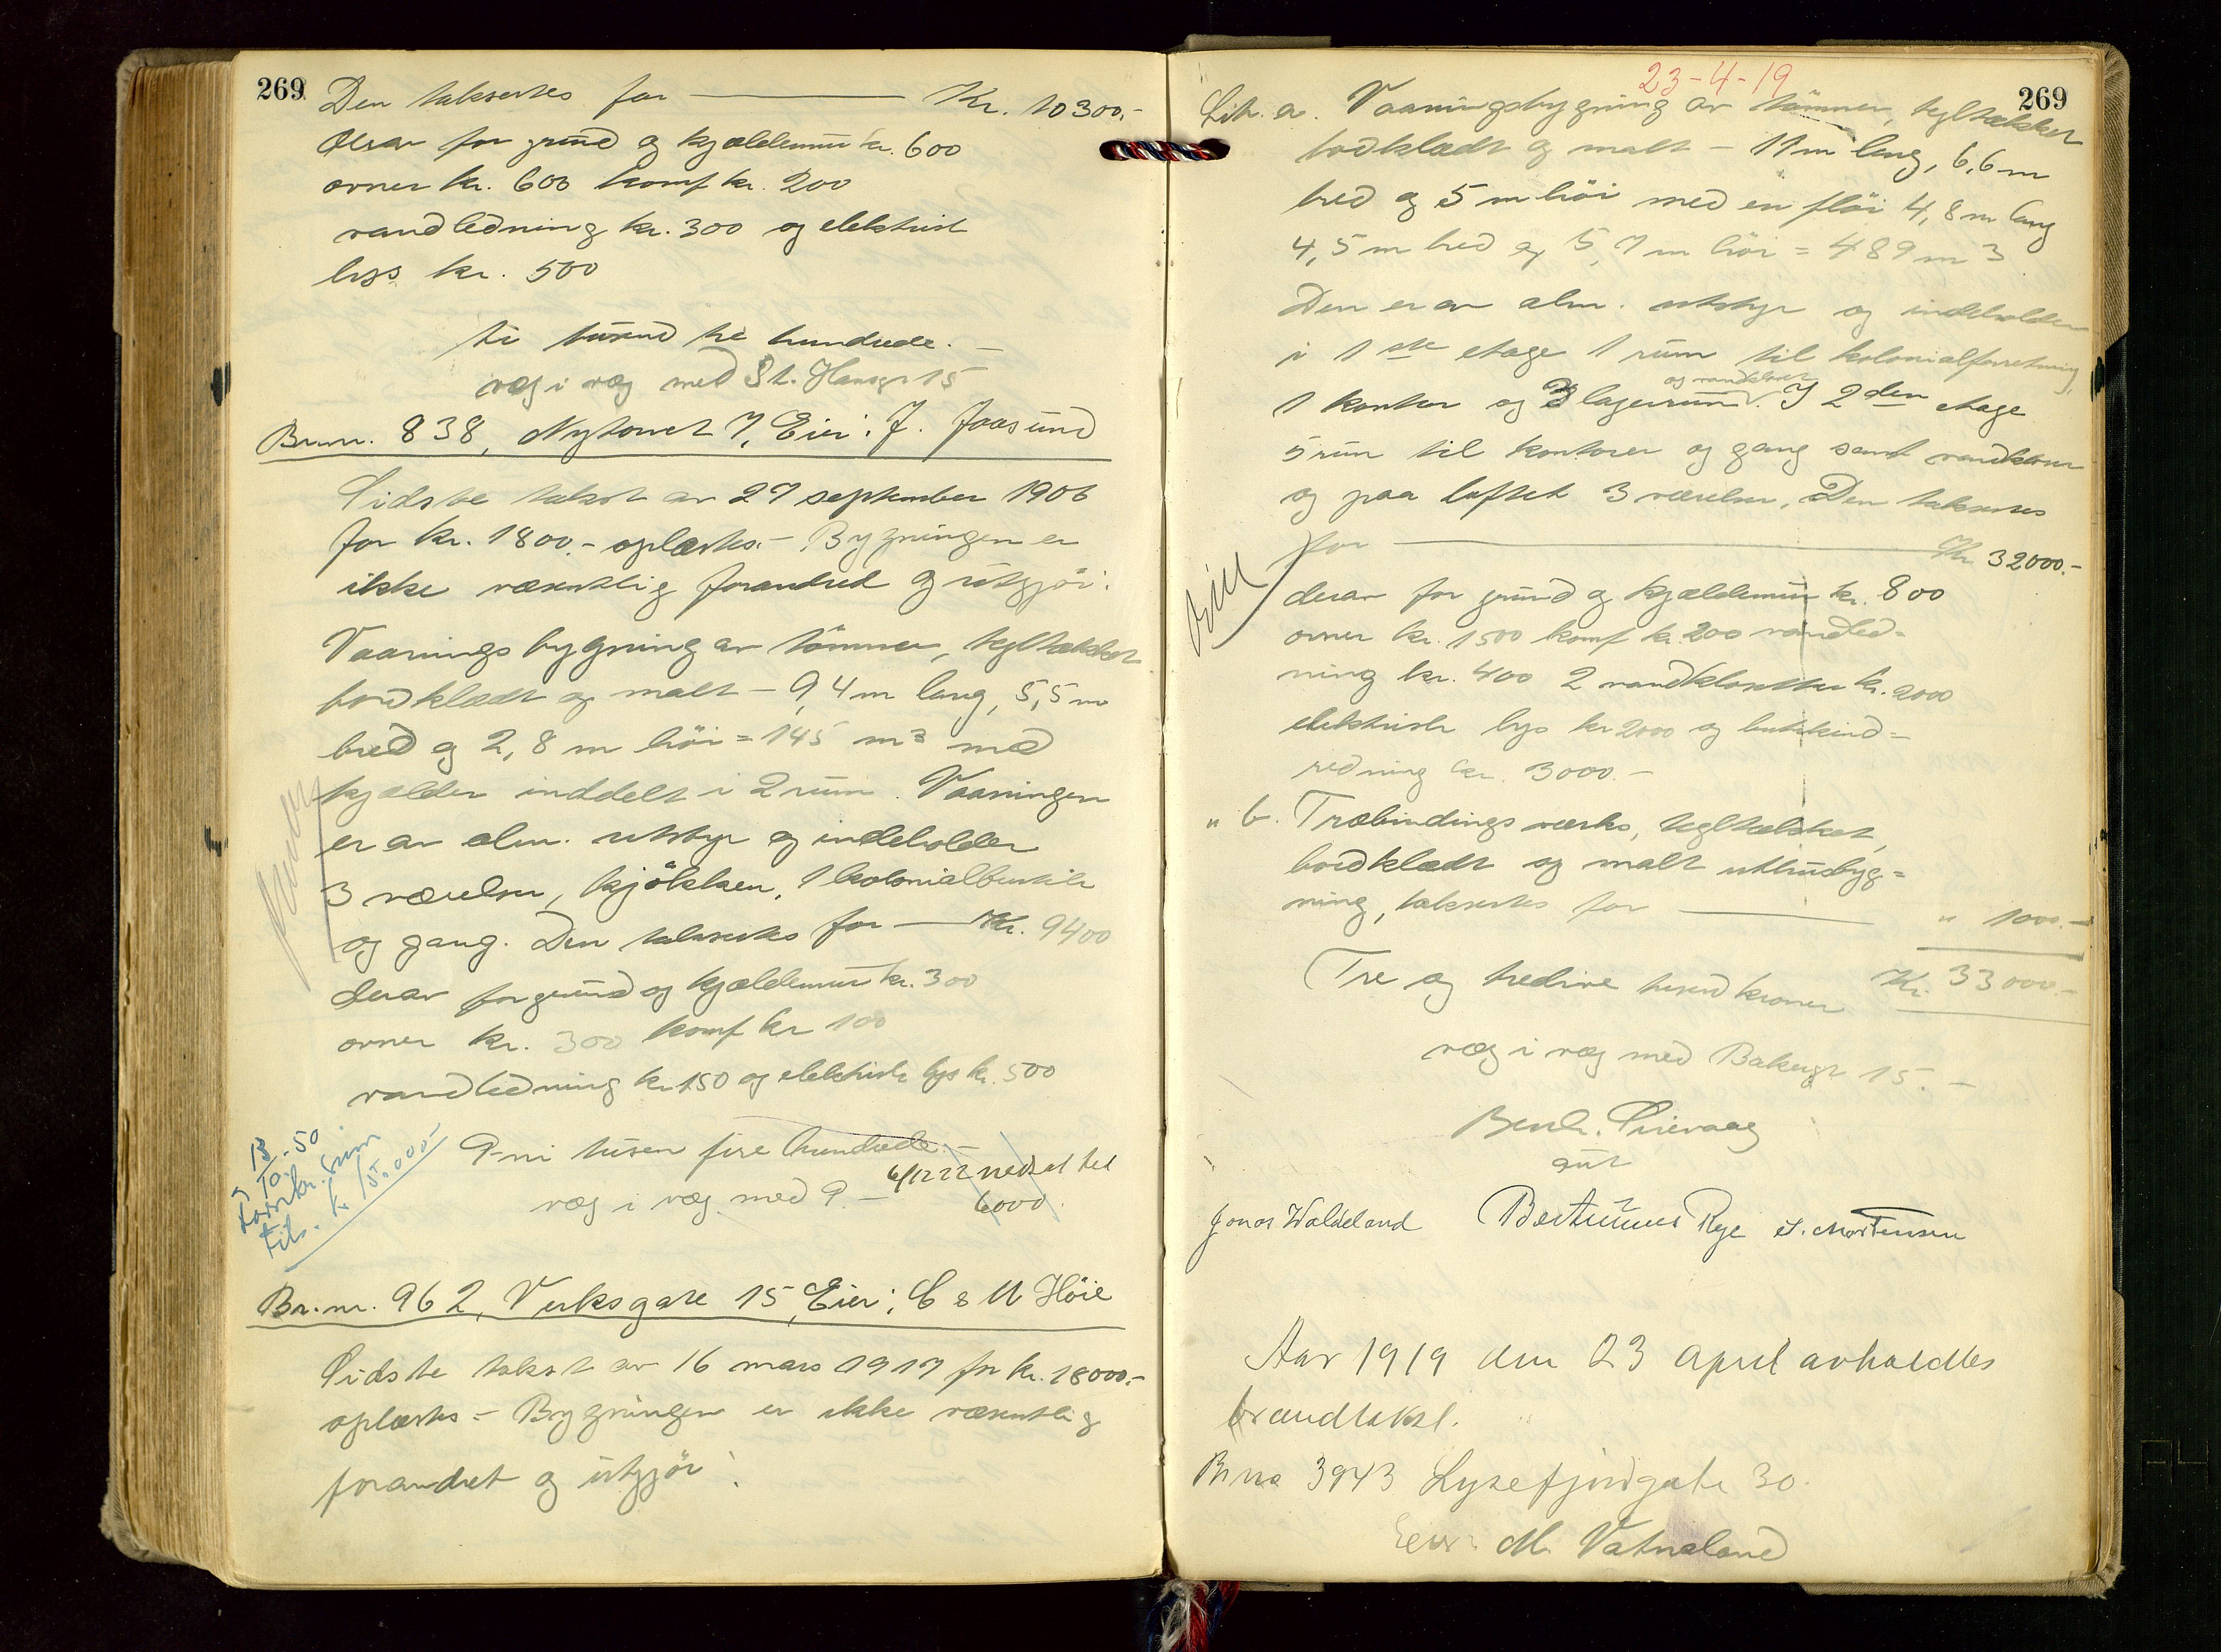 269
Den takseres for Kr. 10300.-
derav for grund og kjældemur kr. 600
ovner kr. 600 komf kr. 200
vandledning kr. 300 og elektrisk
lys kr. 500
ti tusend tre hundrede. -
væg i væg med St. Hansgt 15
Br.nr. 838, Nytorvet 7, Eier: J. Jaasund
Sidste takst av 27 september 1906
for kr. 1800.- oplæstes.- Bygningen er
ikke væsentlig forandred og utgjør:
Vaaningsbygning av tömmer, tegltækket
bordklædt og malt - 9,4 m lang, 5,5 m
bred og 2,8 m höi = 145 m3 med
kjælder inddelt i 2 rum. Vaaningen
er av alm. utstyr og indeholder
3 værelser, kjökken, 1 kolonialbutik
og gang. Den takseres for - Kr. 9400
derav for grund og kjældemur kr. 300
ovner kr. 300 komf kr 100
vandledning kr 150 og elektrisk lys kr. 500
9-ni tusen fire hundrede. -
væg i væg med 9. -
6/12 22 nedsat til
6000.
18/10.-50
til. kr. 15.000
Br.nr. 962, Verksgate 15, Eier: C & M Höie
Sidste takst av 16 mars 1917 for kr. 18000.-
oplæstes - Bygningen er ikke væsentlig
forandret og utgjör:
23-4-19
269
Litr. a. Vaaningsbygning av tömmer, tegltækket
bordklædt og malt - 11 m lang, 6,6 m
bred og 5 m höi med en flöi 4,8 m lang
4,5 m bred og 5,7 m höi = 489 m3
Den er av alm. utstyr og indeholder
i 1ste etage 1 rum til kolonialforretning,
og vandkloset
1 kontor og 3 lagerrum. I 2den etage
5 rum til kontorer og gang samt vandkloset
og paa loftet 3 værelser. Den takseres
for Kr 32000.-
derav for grund og kjældemur kr. 800
ovner kr. 1500 komf kr. 200 vandled=
ning kr. 400 2 vandklosetter kr. 2000
elektrisk lys kr 2000 og butikind=
redning kr. 3000.-
" b. Træbindingsverks, tegltækket,
bordklædt og malt uthusbyg=
ning, takseres for " 1000.-
Tre og tredive tusend kroner Kr. 33000.-
væg i væg med Bakergt 15. -
Jonas Waldeland Rye S. Mortensen
Aar 1919 den 23 april avholdtes
brandtakst.
Br no 3943 Lysefjordgate 30.
Eier: M. Vatnaland